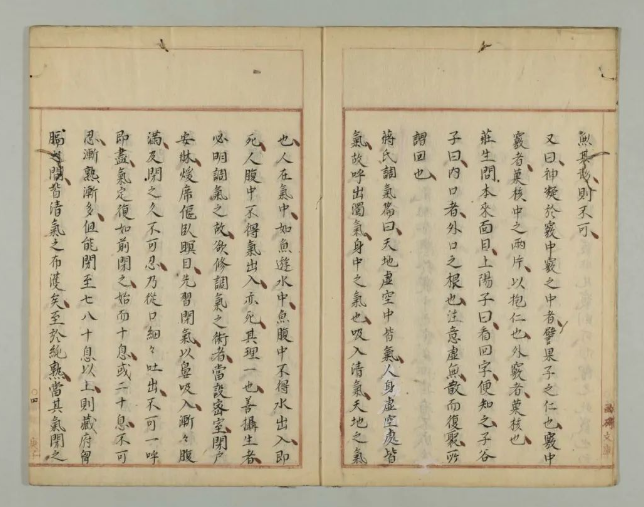 無其哉則不可
又曰神凝於竅中竅之中者譬果子之仁也竅中
竅者菓核中之兩片以抱仁也外竅者菓核也
莊生問本來面目上陽子曰看回字便知之子谷
子曰内口者外口之根也注意虛無散而復聚所
謂回也
蔣氏調氣篇曰天地虛空中皆氣人身虛空處皆
氣故呼出濁氣身中之氣也吸入清氣天地之氣
也人在氣中如魚遊水中魚腹中不得水出入即
死人腹中不得氣出入亦死其理一也善攝生者
必明調氣之故欲修調氣之術者當設密室閉戶
安牀煖席偃臥瞑目先習閉氣以鼻吸入漸々腹
滿及閉之久不可忍乃從口細々吐出不可一呼
即盡氣定復如前閉之始而十息或二十息不可
忍漸熟漸多但能閉至七八十息以上則臟府
膈之間皆清氣之布濩矣至於純熟當其氣閉之